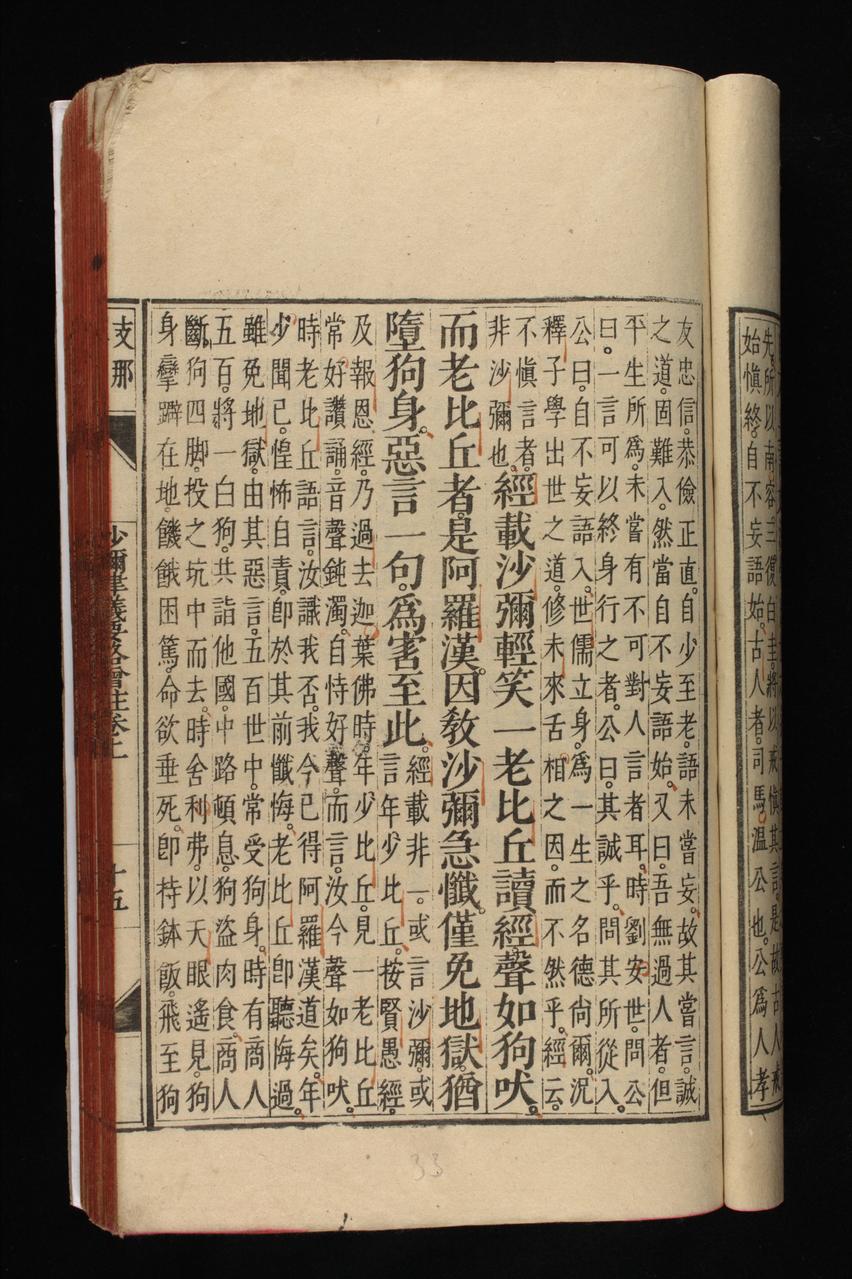 先所以南容三復白圭。將以戒慎其言。是故古人戒
始慎終。自不妄語始。古人者。司馬溫公也。公爲人孝
友忠信。恭儉正直。自少至老。語未嘗妄。故其嘗言。誠
之道。固難入。然當自不妄語始。又曰。吾無過人者。但
平生所爲。未嘗有不可對人言者耳。時劉安世。問公
曰。一言可以終身行之者。公曰。其誠乎。問其所從入。
公曰。自不妄語入。世儒立身。爲一生之名德尙爾。況
釋子學出世之道。修未來舌相之因。而不然乎。經云。
不愼言者。
非沙彌也。
經載沙彌輕笑一老比丘讀經。聲如狗吠。
而老比丘者。是阿羅漢。因敎沙彌急懺。僅免地獄。猶
墮狗身。惡言一句。爲害至此。
經載非一。或言沙彌。或
言年少比丘。按賢愚經。
及報恩經。乃過去迦葉佛時。年少比丘。見一老比丘
常好讚誦。音聲鈍濁。自恃好聲。而言。汝今聲如狗吠。
時老比丘語言。汝識我否。我今已得阿羅漢道矣。年
少聞已。惶怖自責。卽於其前懺悔。老比丘卽聽悔過。
雖免地獄。由其惡言。五百世中。常受狗身。時有商人
五百。將一白狗。共詣他國。中路頓息。狗盜肉食。商人
斷狗四脚。投之坑中而去。時舍利弗。以天眼遙見。狗
身攣躃在地。饑餓困篤。命欲垂死。卽持鉢飯。飛至狗
支那
沙彌律儀要略會註卷上
十五
33